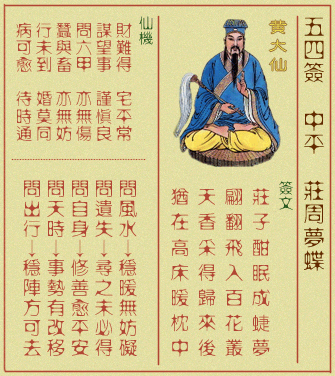 五四簽 中平 莊周夢蝶
黃大仙
簽文
莊子酣眠成蜨夢
翩翻飛入百花叢
天香采得歸來後
猶在高床暖枕中
仙機
財難得 宅平常
謀望事 謹慎良
問六甲 亦無傷
蠶與畜 亦無妨
行未到 婚莫同
病可愈 待時通
問風水↓穩暖無妨礙
問遺失↓尋之未必得
問自身↓修善愈平安
問天時↓事勢有改移
問出行↓穩陣方可去